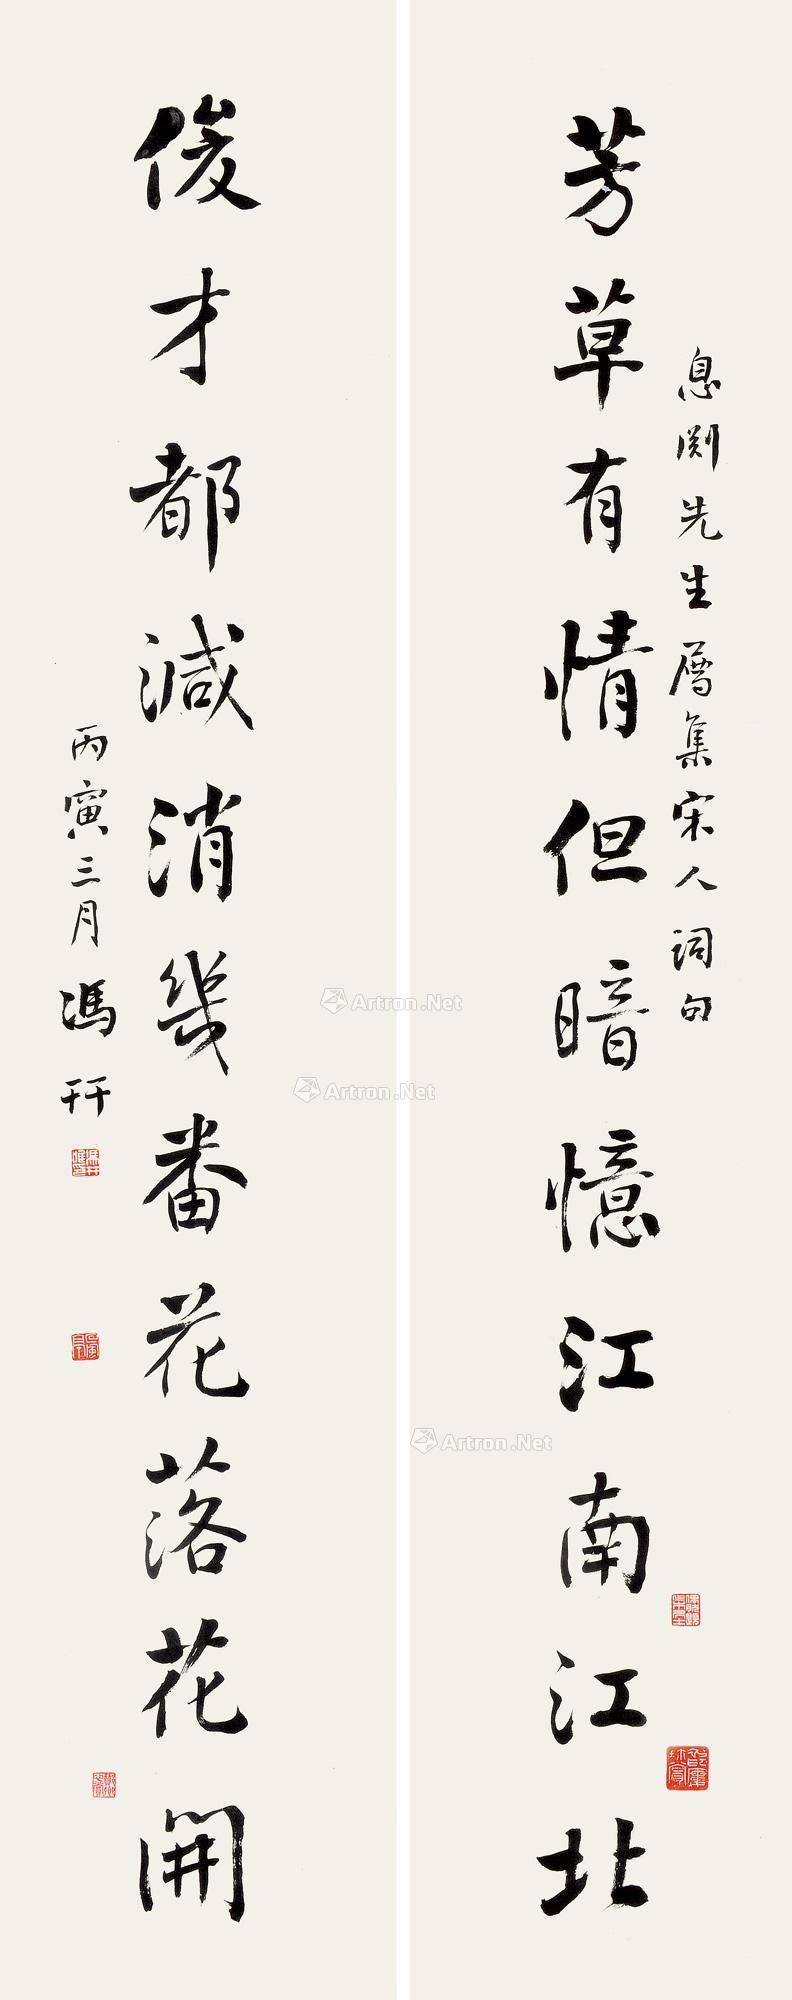 息渊先生属集宋人词句
芳草有情但暗憶江南江北
俊才都減消幾番花落花開
丙寅三月馮幵
Artron.Net
Artron.Net
Artron.Net